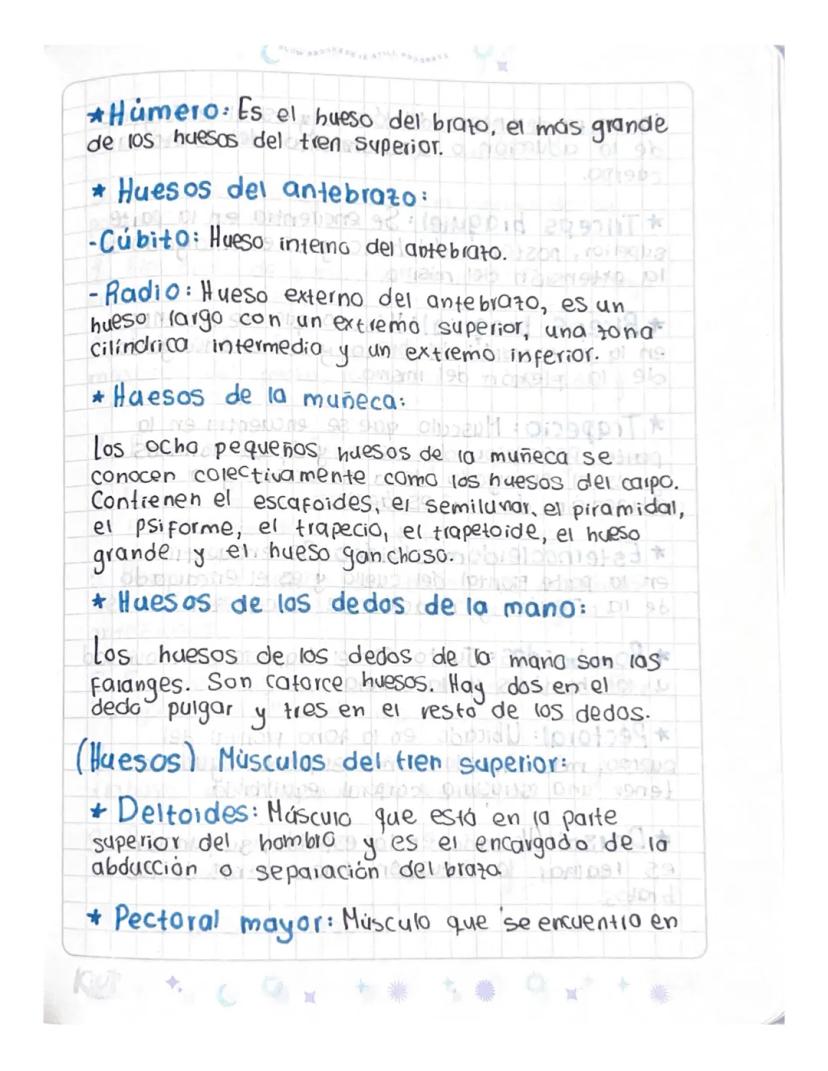 SLOW PROGRESS IS STILL PROGRESS
*Húmero: Es el hueso del brazo, el más grande
de los huesos del tren superior.
* Huesos del antebrazo:
-Cúbito: Hueso interno del antebrazo.
-Radio: Hueso externo del antebrazo, es un
hueso largo con un extremo superior, una zona
cilíndrica intermedia y un extremo inferior.
* Huesos de la muñeca:
Los ocho pequeños huesos de la muñeca se
conocen colectivamente como los huesos del carpo.
Contienen el escafoides, el semilunar, el piramidal,
el psiforme, el trapecio, el trapetoide, el hueso
grande y el hueso ganchoso.
* Huesos de los dedos de la mano:
Los huesos de los dedos de la mano son las
falanges. Son catorce huesos. Hay dos en el
dedo pulgar y tres en el resto de los dedos.
(Huesos) Músculos del tren superior:
* Deltoides: Músculo que está en la parte
superior del hombro y es el encargado de la
abducción o separación del brazo
* Pectoral mayor: Músculo que se encuentra en
Kiut